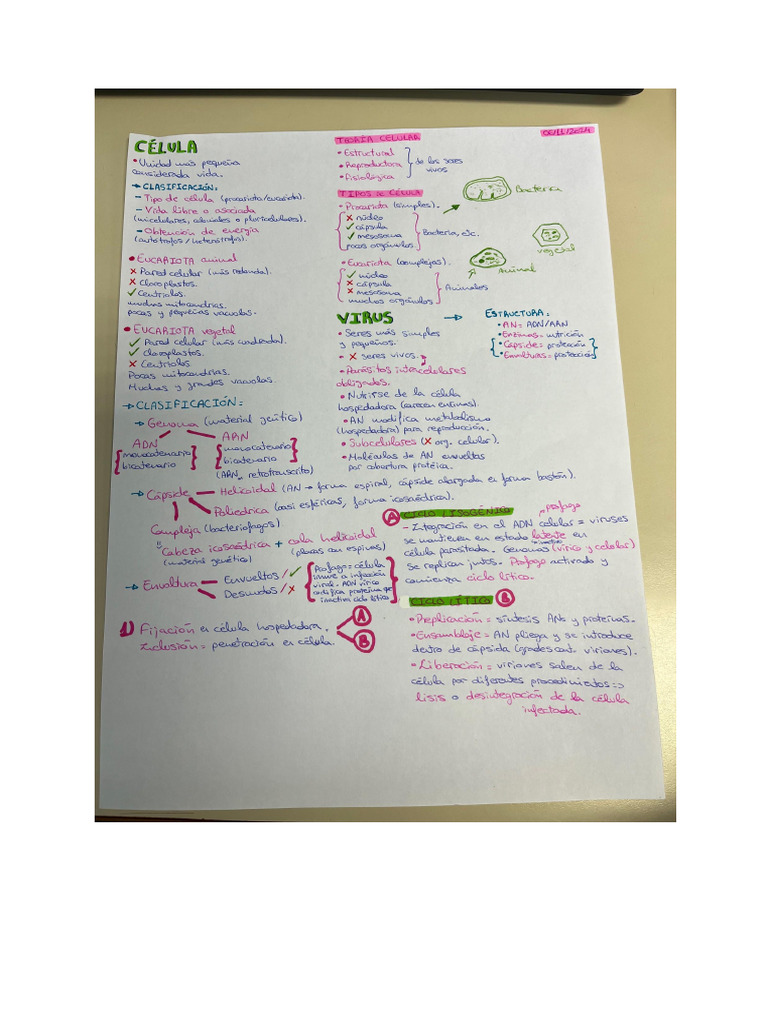 CÉLULA
• Unidad más pequeña
considerada vida.
→ CLASIFICACIÓN:
- Tipo de célula (procariota/eucariota).
- Vida libre o asociada
(unicelulares, coloniales o pluricelulares).
- Obtención de energía
(autótrofos / heterótrofos).
• EUCARIOTA animal
✗ Pared celular (más redonda).
✗ Cloroplastos.
✓ Centriolos.
muchas mitocondrias.
pocas y pequeñas vacuolas.
• EUCARIOTA vegetal
✓ Pared celular (más cuadrada).
✓ Cloroplastos.
✗ Centriolos
Pocas mitocondrias.
Muchas y grandes vacuolas.
→ CLASIFICACIÓN:
→ Genoma (material genético)
ADN
monocatenario
bicatenario
ARN
monocatenario
bicatenario
(ARN retrotranscrito)
→ Cápside — Helicoidal (AN → forma espiral, cápside alargada en forma bastón).
Poliedrica (casi esféricas, forma icosaédrica).
Compleja (bacteriofagos)
Cabeza icosaédrica + cola helicoidal
(material genético) (placas con espinas)
→ Envoltura — Envueltos / ✓
Desnudos / ✗
Profago = célula
inmune a infección
viral. ADN vírico
codifica proteína que
inactiva ciclo lítico
1) Fijación en célula hospedadora. A
Inclusión = penetración en célula. B
TEORÍA CELULAR
• Estructural
• Reproductora
• Fisiológica
de los seres
vivos
06/11/2024
TIPOS DE CÉLULA
• Procariota (simples).
✗ núcleo
✓ cápsula
✓ mesosoma
pocos orgánulos.
Bacteria, etc.
• Eucariota (complejas).
✓ núcleo
✗ cápsula
✗ mesosoma
muchos orgánulos
Animales
Bacteria
vegetal
Animal
VIRUS →
• Seres más simples
y pequeños.
- ✗ seres vivos.
• Parásitos intercelulares
obligados.
• Nutrirse de la célula
hospedadora (carecen enzimas).
• AN modifica metabolismo
(hospedadora) para reproducción.
• Subcelulares (✗ org. celular).
• Moléculas de AN envueltas
por cobertura protéica.
ESTRUCTURA:
• AN = ADN/ARN
Enzimas = nutrición
• Cápside = protección
• Envolturas = protección
A CICLO LISOGÉNICO profago
- Integración en el ADN celular = viruses
se mantienen en estado latente en
célula parasitada. Genomas (vírico y celular)
se replican juntos. Profago activado y
comienza ciclo lítico.
CICLO LÍTICO B
• Replicación = síntesis ANs y proteínas.
• Ensamblaje = AN pliega y se introduce
dentro de cápsida (grades cant. viriones).
• Liberación = viriones salen de la
célula por diferentes procedimientos =>
lisis o desintegración de la célula
infectada.